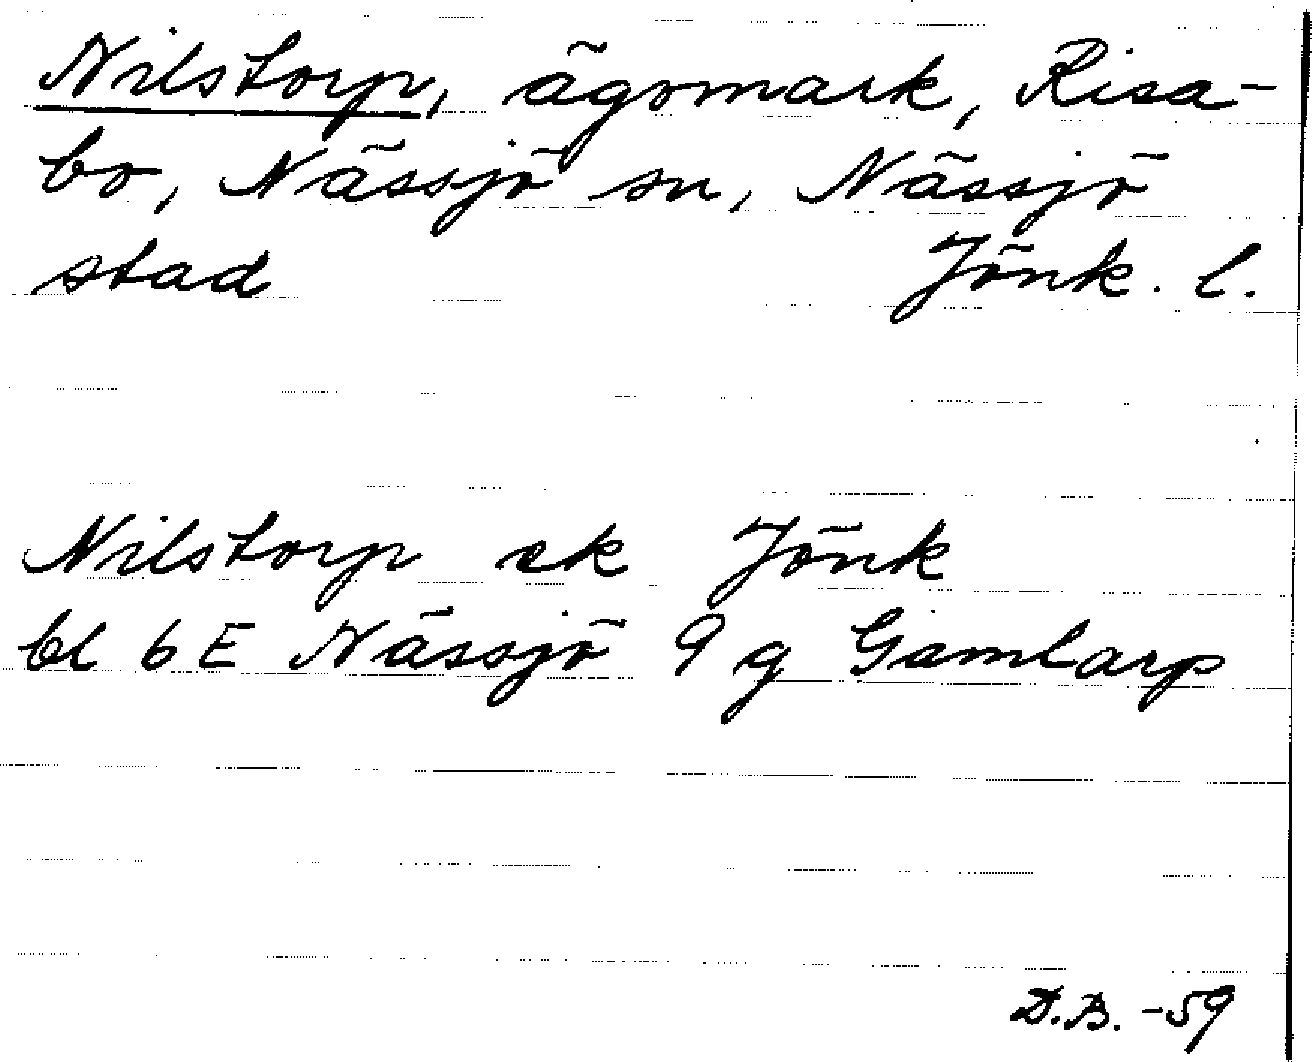 Nilstorp, ägomark, Risa-
bo, Nässjö sn, Nässjö
stad Jönk. l.
Nilstorp ek Jönk
bl 6E Nässjö 9 g Gamlarp
D.B. -59